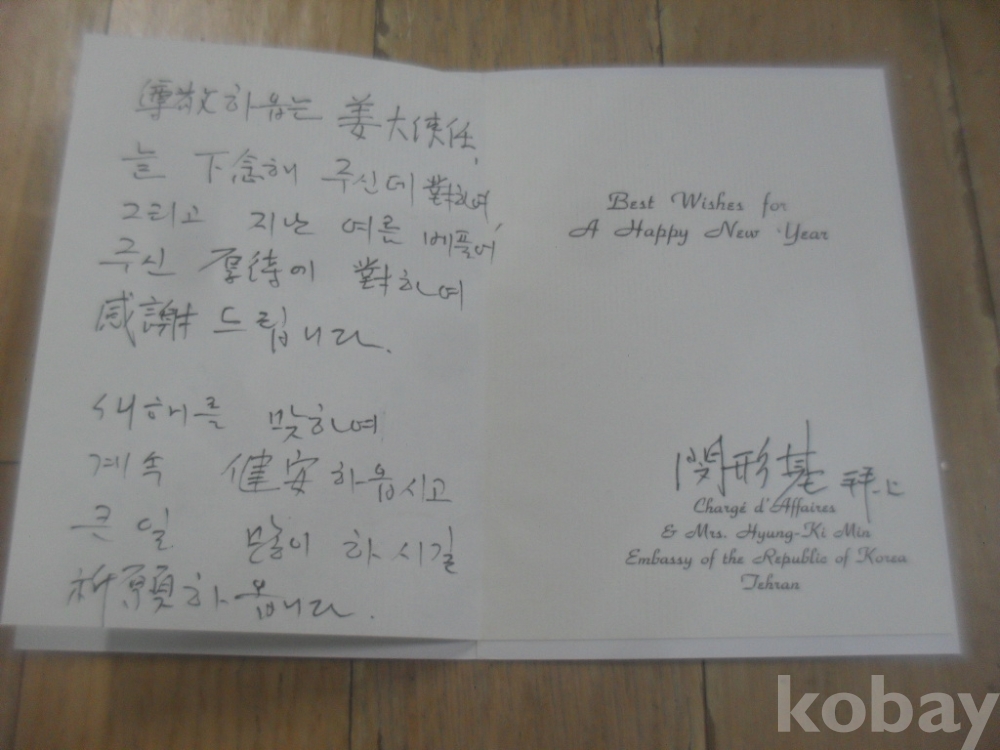 尊敬하옵는 姜大俠任,
늘 下念해 주신데 對하여,
그리고 지난 여름 베풀어
주신 厚待에 對하여
感謝 드립니다.
새해를 맞하여
계속 健安하옵시고
큰 일 많이 하시길
祈願하옵니다.
Best Wishes for
A Happy New Year
閔形基 拜上
Chargé d'Affaires
& Mrs. Hyung-Ki Min
Embassy of the Republic of Korea
Tehran
kobay